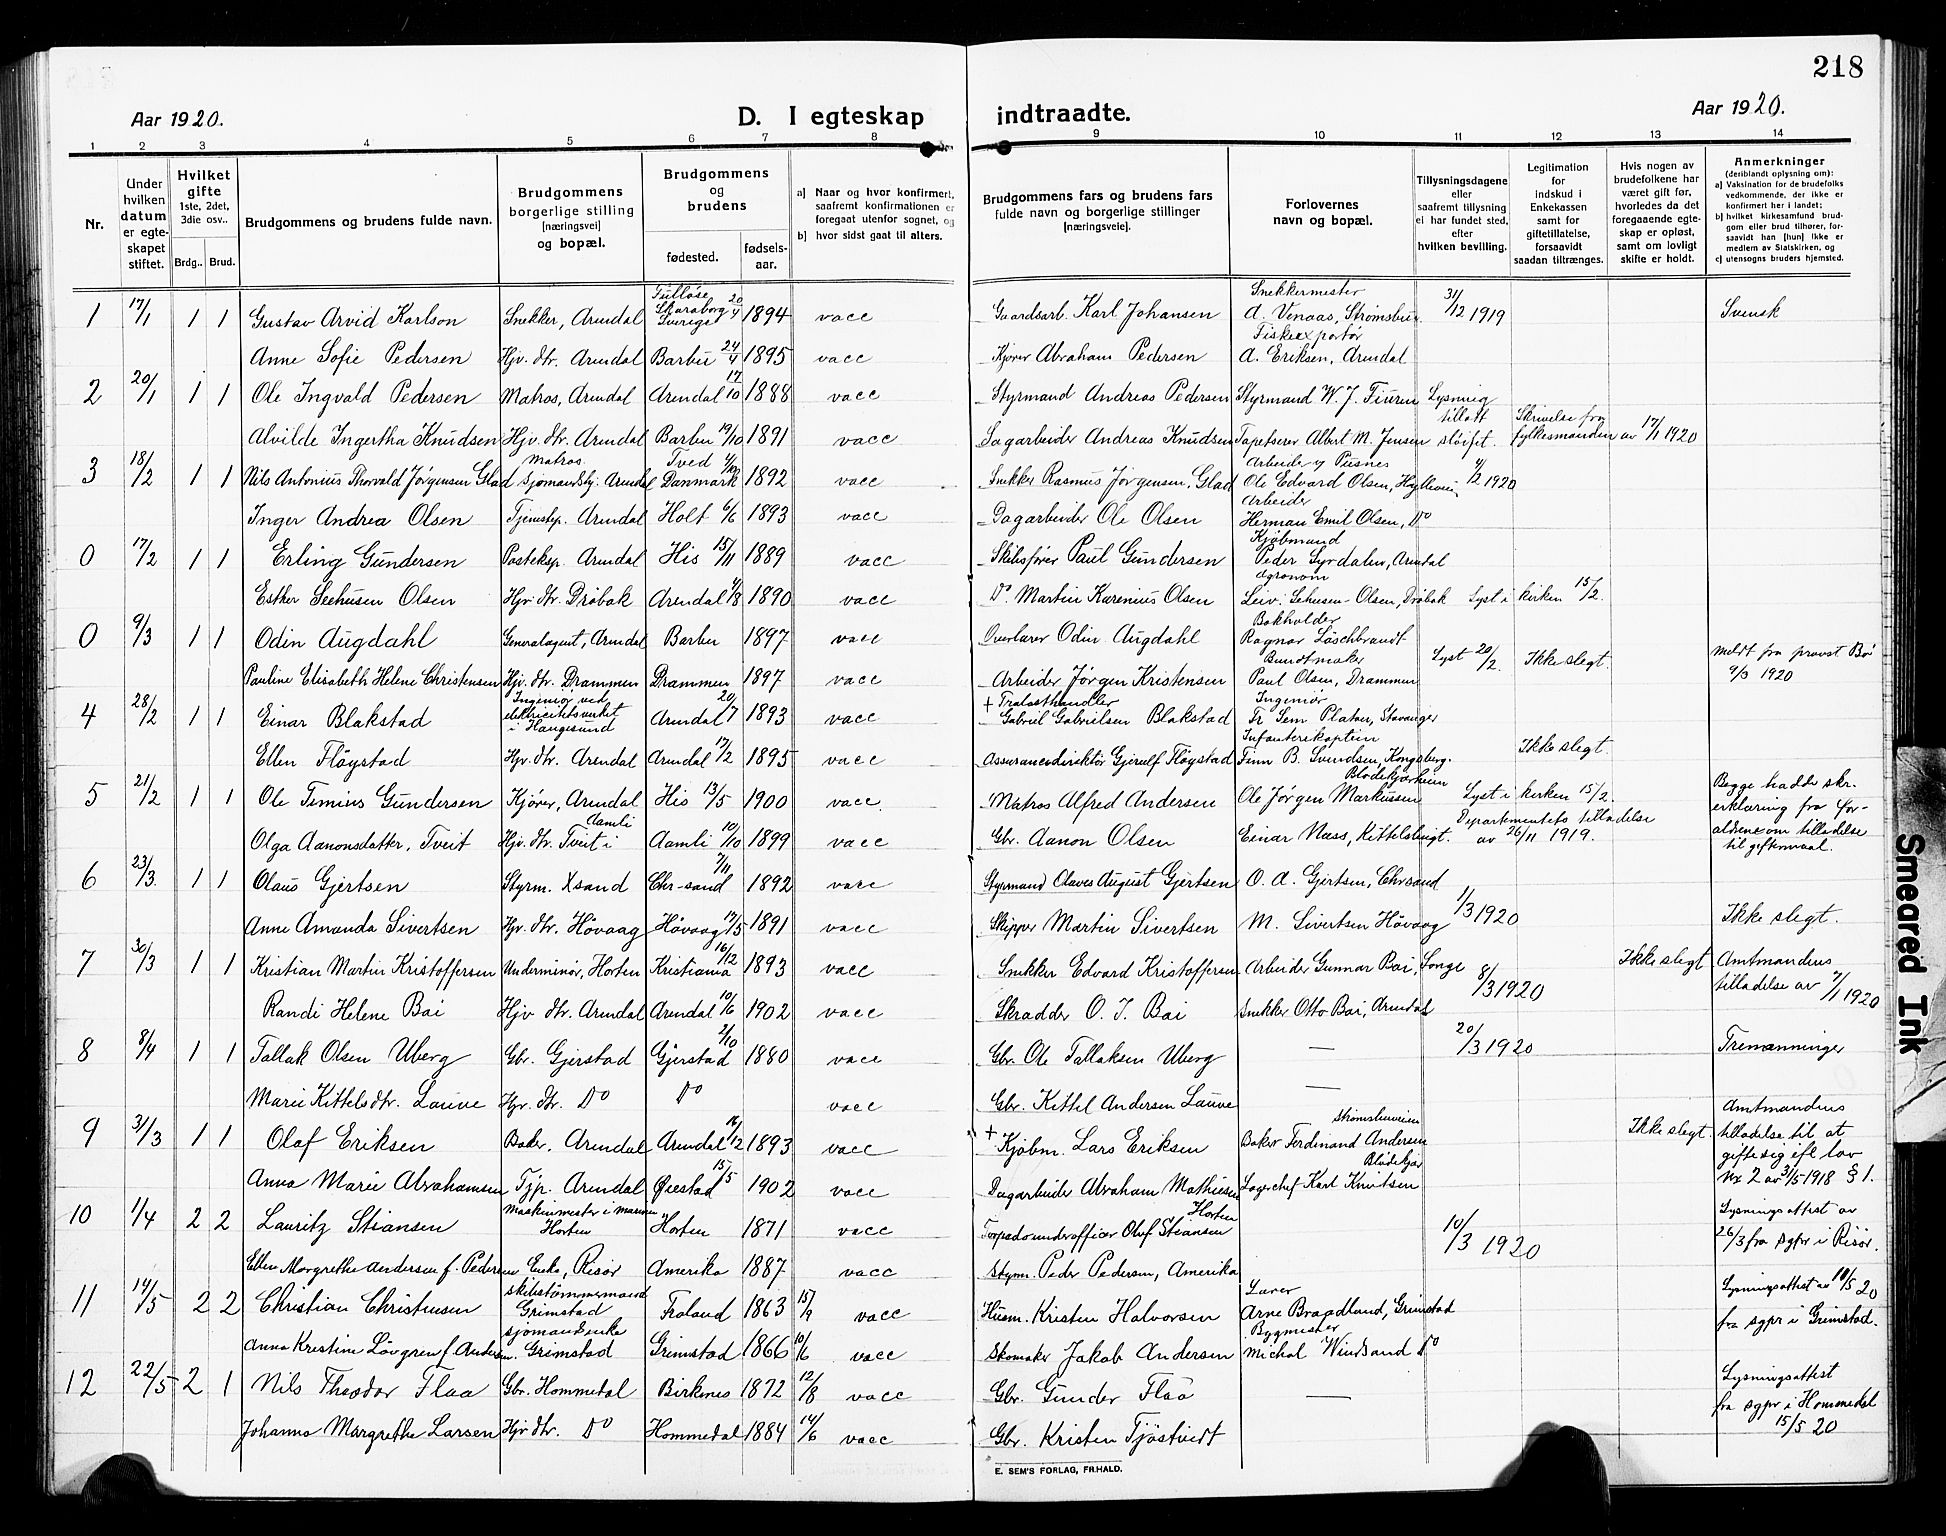 218
Aar 1920.
D. I egteskap indtraadte.
Aar 1920.
1 2 3 4 5 6 7 8 9 10 11 12 13 14
Nr.
Under hvilken datum er egteskapet stiftet.
Hvilket gifte 1ste, 2det, 3die osv..
Brdg.. Brud.
Brudgommens og brudens fulde navn.
Brudgommens borgerlige stilling [næringsvei] og bopæl.
Brudgommens og brudens
fødested.
fødsels-aar.
a) Naar og hvor konfirmert, saafremt konfirmationen er foregaat utenfor sognet, og
b) hvor sidst gaat til alters.
Brudgommens fars og brudens fars fulde navn og borgerlige stillinger [næringsveie].
Forlovernes navn og bopæl.
Tillysningsdagene eller saafremt tillysning ei har fundet sted, efter hvilken bevilling.
Legitimation for indskud i Enkekassen samt for giftetillatelse, forsaavidt saadan tiltrænges.
Hvis nogen av brudefolkene har været gift før, hvorledes da det foregaaende egteskap er opløst, samt om lovligt skifte er holdt.
Anmerkninger (deriblandt oplysning om):
a) Vaksination for de brudefolks vedkommende, der ikke er konfirmert her i landet;
b) hvilket kirkesamfund brudgom eller brud tilhører, forsaavidt han [hun] ikke er medlem av Statskirken, og
c) utensogns bruders hjemsted.
1 17/1 1 1 Gustav Arvid Karlson Snekker, Arendal Skaraborg Sverige 20/4 1894 vacc Gaardsarb. Karl Johansen Snekkermester A. Venaas, Strømsbu. 31/12 1919 Svensk
Anne Sofie Pedersen Hjv. dtr. Arendal Barbu 24/4 1895 vacc Kjører Abraham Pedersen Fiskeexportør A. Eriksen, Arendal
2 20/1 1 1 Ole Ingvald Pedersen Matros, Arendal Arendal 17/10 1888 vacc Styrmand Andreas Pedersen Styrmand W. J. Fiuren Lysning tillatt sløifet. Skrivelse fra fylkesmanden av 17/1 1920
Alvilde Ingertha Knudsen Hjv. dtr. Arendal Barbu 19/10 1891 vacc Dagarbeider Andreas Knudsen Tapetserer Albert M. Jensen
3 18/2 1 1 Nils Antonius Thorvald Jørgensen Glad Matros sjømandsbj. Arendal Tved Danmark 1892 vacc Snekker Rasmus Jørgensen Glad Arbeider Pusnes Ole Edvard Olsen, 4/2 1920
Inger Andrea Olsen Tjenestep. Arendal Holt 6/6 1893 vacc Dagarbeider Ole Olsen Arbeider Herman Emil Olsen, Do
0 17/2 1 1 Erling Gundersen Posteksp. Arendal His 15/11 1889 vacc Skibsfører Paul Gundersen Kjøbmand Peder Syrdalen, Arendal
Esther Seehusen Olsen Hjv. dtr. Drøbak Arendal 4/8 1890 vacc Do. Martin Karenius Olsen Agronom Leiv. Sehusen-Olsen, Drøbak Lyst i kirken 15/2.
0 9/3 1 1 Odin Augdahl Generalagent, Arendal Barbu 1897 vacc Overlærer Odin Augdahl Bokholder Ragnar Løschbrandt Lyst 20/2. Ikke slegt. meldt fra provst Bö 9/3 1920
Pauline Elisabeth Helene Christensen Hjv. dtr. Drammen Drammen 1897 vacc Arbeider Jørgen Kristensen Bundtmaker Paul Olsen, Drammen
4 28/2 1 1 Einar Blakstad Ingeniør ved elektricitetsverket i Haugesund Arendal 20/7 1893 vacc + Trælasthandler Gabriel Gabrielsen Blakstad Ingeniør Fr. Sem Platou, Stavanger
Ellen Fløystad Hjv. dtr. Arendal Arendal 17/2 1895 vacc Assurancedirektør Gjerulf Fløystad Infanterikaptein Finn B. Svendsen, Kongsberg. Ikke slegt.
5 21/2 1 1 Ole Temius Gundersen Kjører, Arendal His 13/5 1900 vacc. Matros Alfred Andersen Blødekjærheien Ole Jørgen Markussen Lyst i kirken 15/2. Begge hadde skr. erklæring fra foraldrene om tilladelse til giftermaal.
Olga Aanonsdatter, Tveit Hjv. dtr. Tveit i Aamli Aamli 10/10 1899 vacc Gbr. Aanon Olsen Einar Næss, Kittelsbugt. Departementets tilladelse av 26/11 1919.
6 23/3. 1 1 Olaus Gjertsen Styrm. Xsand Chr-sand 7/11 1892 vacc Styrmand Olaves August Gjertsen O. A. Gjertsen, Chrsand
Anne Amanda Sivertsen Hjv. dtr. Høvaag Høvaag 17/5 1891 vacc Skipper Martin Sivertsen M. Sivertsen Høvaag 1/3 1920 Ikke slegt.
7 30/3 1 1 Kristian Martin Kristoffersen Underminør, Horten Kristiania 16/12 1893 vacc Snekker Edvard Kristoffersen Arbeider Gunnar Bai, Songe 8/3 1920 Ikke slegt Amtmandens tilladelse av 7/1 1920
Randi Helene Bai Hjv dtr. Arendal Arendal 10/6 1902 vacc Skrædder O. J. Bai Snekker Otto Bai, Arendal
8 8/4 1 1 Tallak Olsen Uberg Gbr. Gjerstad Gjerstad 2/10 1880 vacc Gbr. Ole Tallaksen Uberg — 20/3 1920 Tremænninger
Marie Kittelsdtr. Lauve Hjv. dtr. Do Do vacc Gbr. Kittel Andersen Lauve —
9 31/3 1 1 Olaf Eriksen Baker. Arendal Arendal 16/12 1893 vacc + Kjøbm. Lars Eriksen Strømsbuveien Baker Ferdinand Andersen Ikke slegt. Amtmandens tilladelse til at gifte sig efl. lov Nr 2 av 31/5 1918 § 1.
Anna Marie Abrahamsen Tjp. Arendal Øiestad 15/5 1902 vacc Dagarbeider Abraham Mathiesen Blødekjær Lagerchef Karl Knutsen
10 1/4 2 2 Lauritz Stiansen Maskinmester i marinen Horten Horten 1871 vacc Torpedounderofficer Oluf Stiansen Horten 10/3 1920 Lysningsattest av 26/3 fra sgpr i Risør.
Ellen Margrethe Andersen f. Pedersen Enke, Risør Amerika 1887 vacc Styrm. Peder Pedersen, Amerika
11 14/5 2 2 Christian Christensen skibstømmermand Grimstad Froland 1863 15/9 vacc Husm. Kristen Halvorsen Lærer Arne Braadland, Grimstad Lysningsattest av 10/5 20 fra sgpr i Grimstad.
Anna Kristine Løvgren f. Andersen. sjømandsenke Grimstad Grimstad 1866 10/6 vacc Skomaker Jakob Andersen Bygmester Michal Windsand Do
12 22/5 2 1 Nils Theodor Flaa Gbr. Hommedal Birkenes 1872 12/8 vacc Gbr. Gunder Flaa — Lysningsattest fra sgpr i Hommedal 15/5 20
Johanna Margrethe Larsen Hjv dtr. Do Hommedal 1884 14/6 vacc Gbr. Kristen Tjøstvedt
E. SEM'S FORLAG, FR.HALD.
Smeared Ink